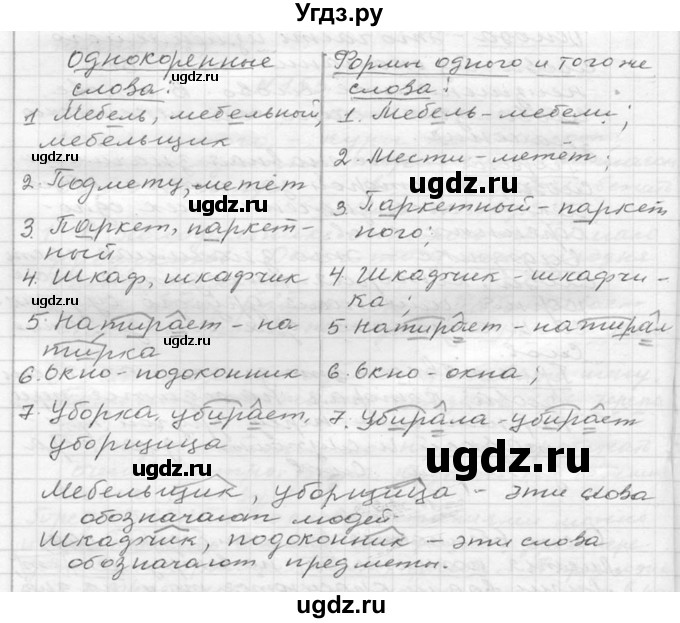 Угдз.ру
Однокоренные
слова:
1 Мебель, мебельный,
мебельщик
2. Подмету, метёт
3. Паркет, паркет-
ный
4. Шкаф, шкафчик
5. Натирает - на
тирка
6. Окно - подоконник
7. Уборка, убирает,
уборщица
Формы одного и того же
слова:
1. Мебель - мебели;
2. Мести - метёт;
3. Паркетный - паркет
ного;
4. Шкафчик - шкафчи-
ка;
5. Натирает - натирал
6. Окно - окна;
7. Убирала - убирает
Мебельщик, уборщица - эти слова
обозначают людей.
Шкафчик, подоконник - эти слова
обозначают предметы.
ugdz.ru
ugdz.ru
ugdz.ru
ugdz.ru
ugdz.ru
ugdz.ru
ugdz.ru
ugdz.ru
ugdz.ru
ugdz.ru
ugdz.ru